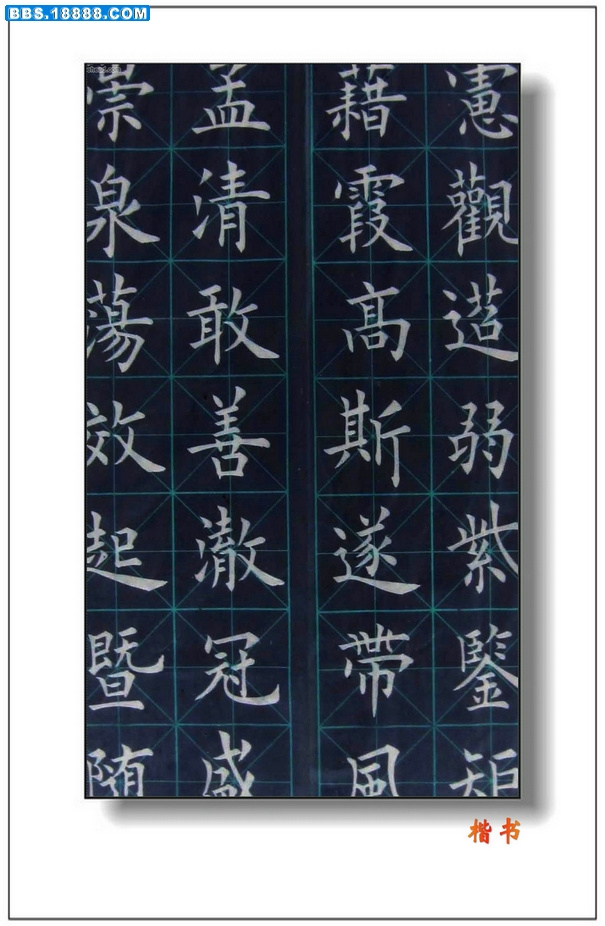 BBS.18888.COM
憲觀弱紫鑒矩
藉霞髙斯遂帶風
孟清敢善澈冠盛
崇泉蕩效起暨随
楷书